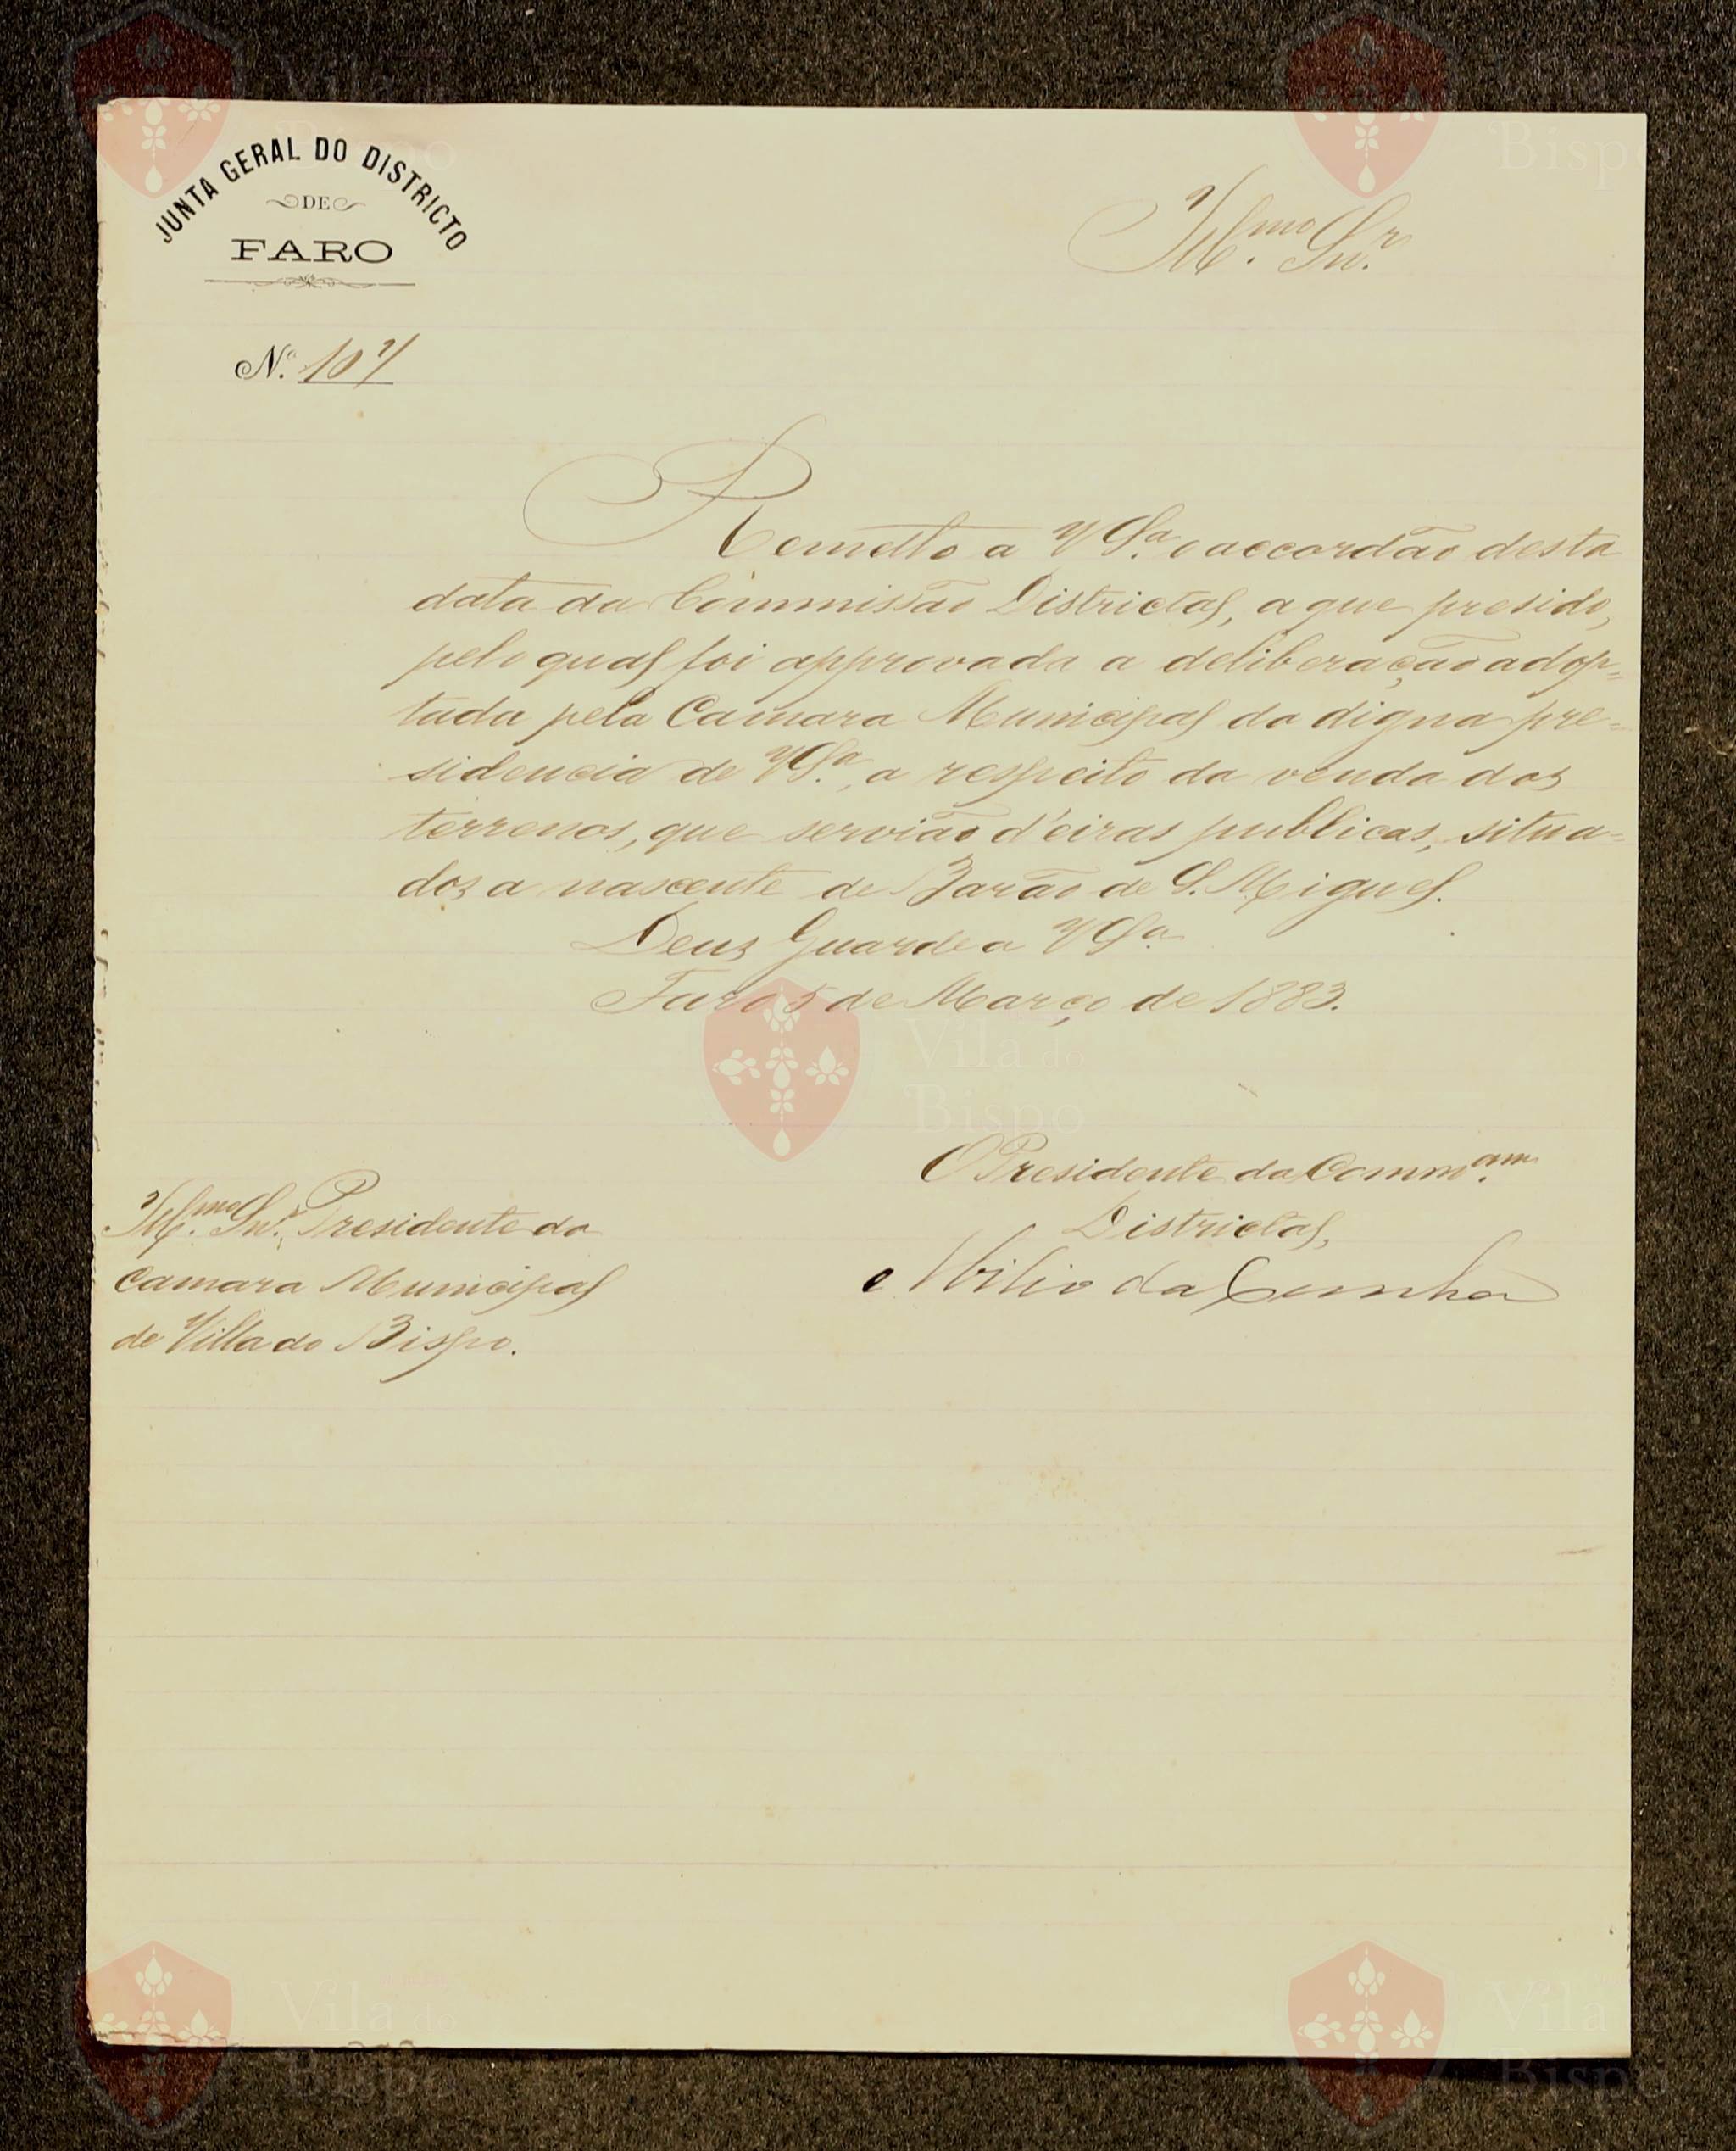 JUNTA GERAL DO DISTRICTO
DE
FARO
Nº 107
Illmo. Snr.
Remetto a VSa. o accordão desta
data da Commissão Districtal, a que presido,
pelo qual foi approvada a deliberação adop=
tada pela Camara Municipal da digna pre=
sidencia de VSa., a respeito da venda dos
terrenos, que servião d'eiras publicas, situa=
dos a nascente de Barão de S. Miguel.
Deus Guarde a VSa.
Faro 5 de Março de 1883.
O Presidente da Comm.am
Districtal,
Abilio da Cunha
Illmo. Snr. Presidente da
Camara Municipal
de Villa do Bispo.
Vila do
Bispo